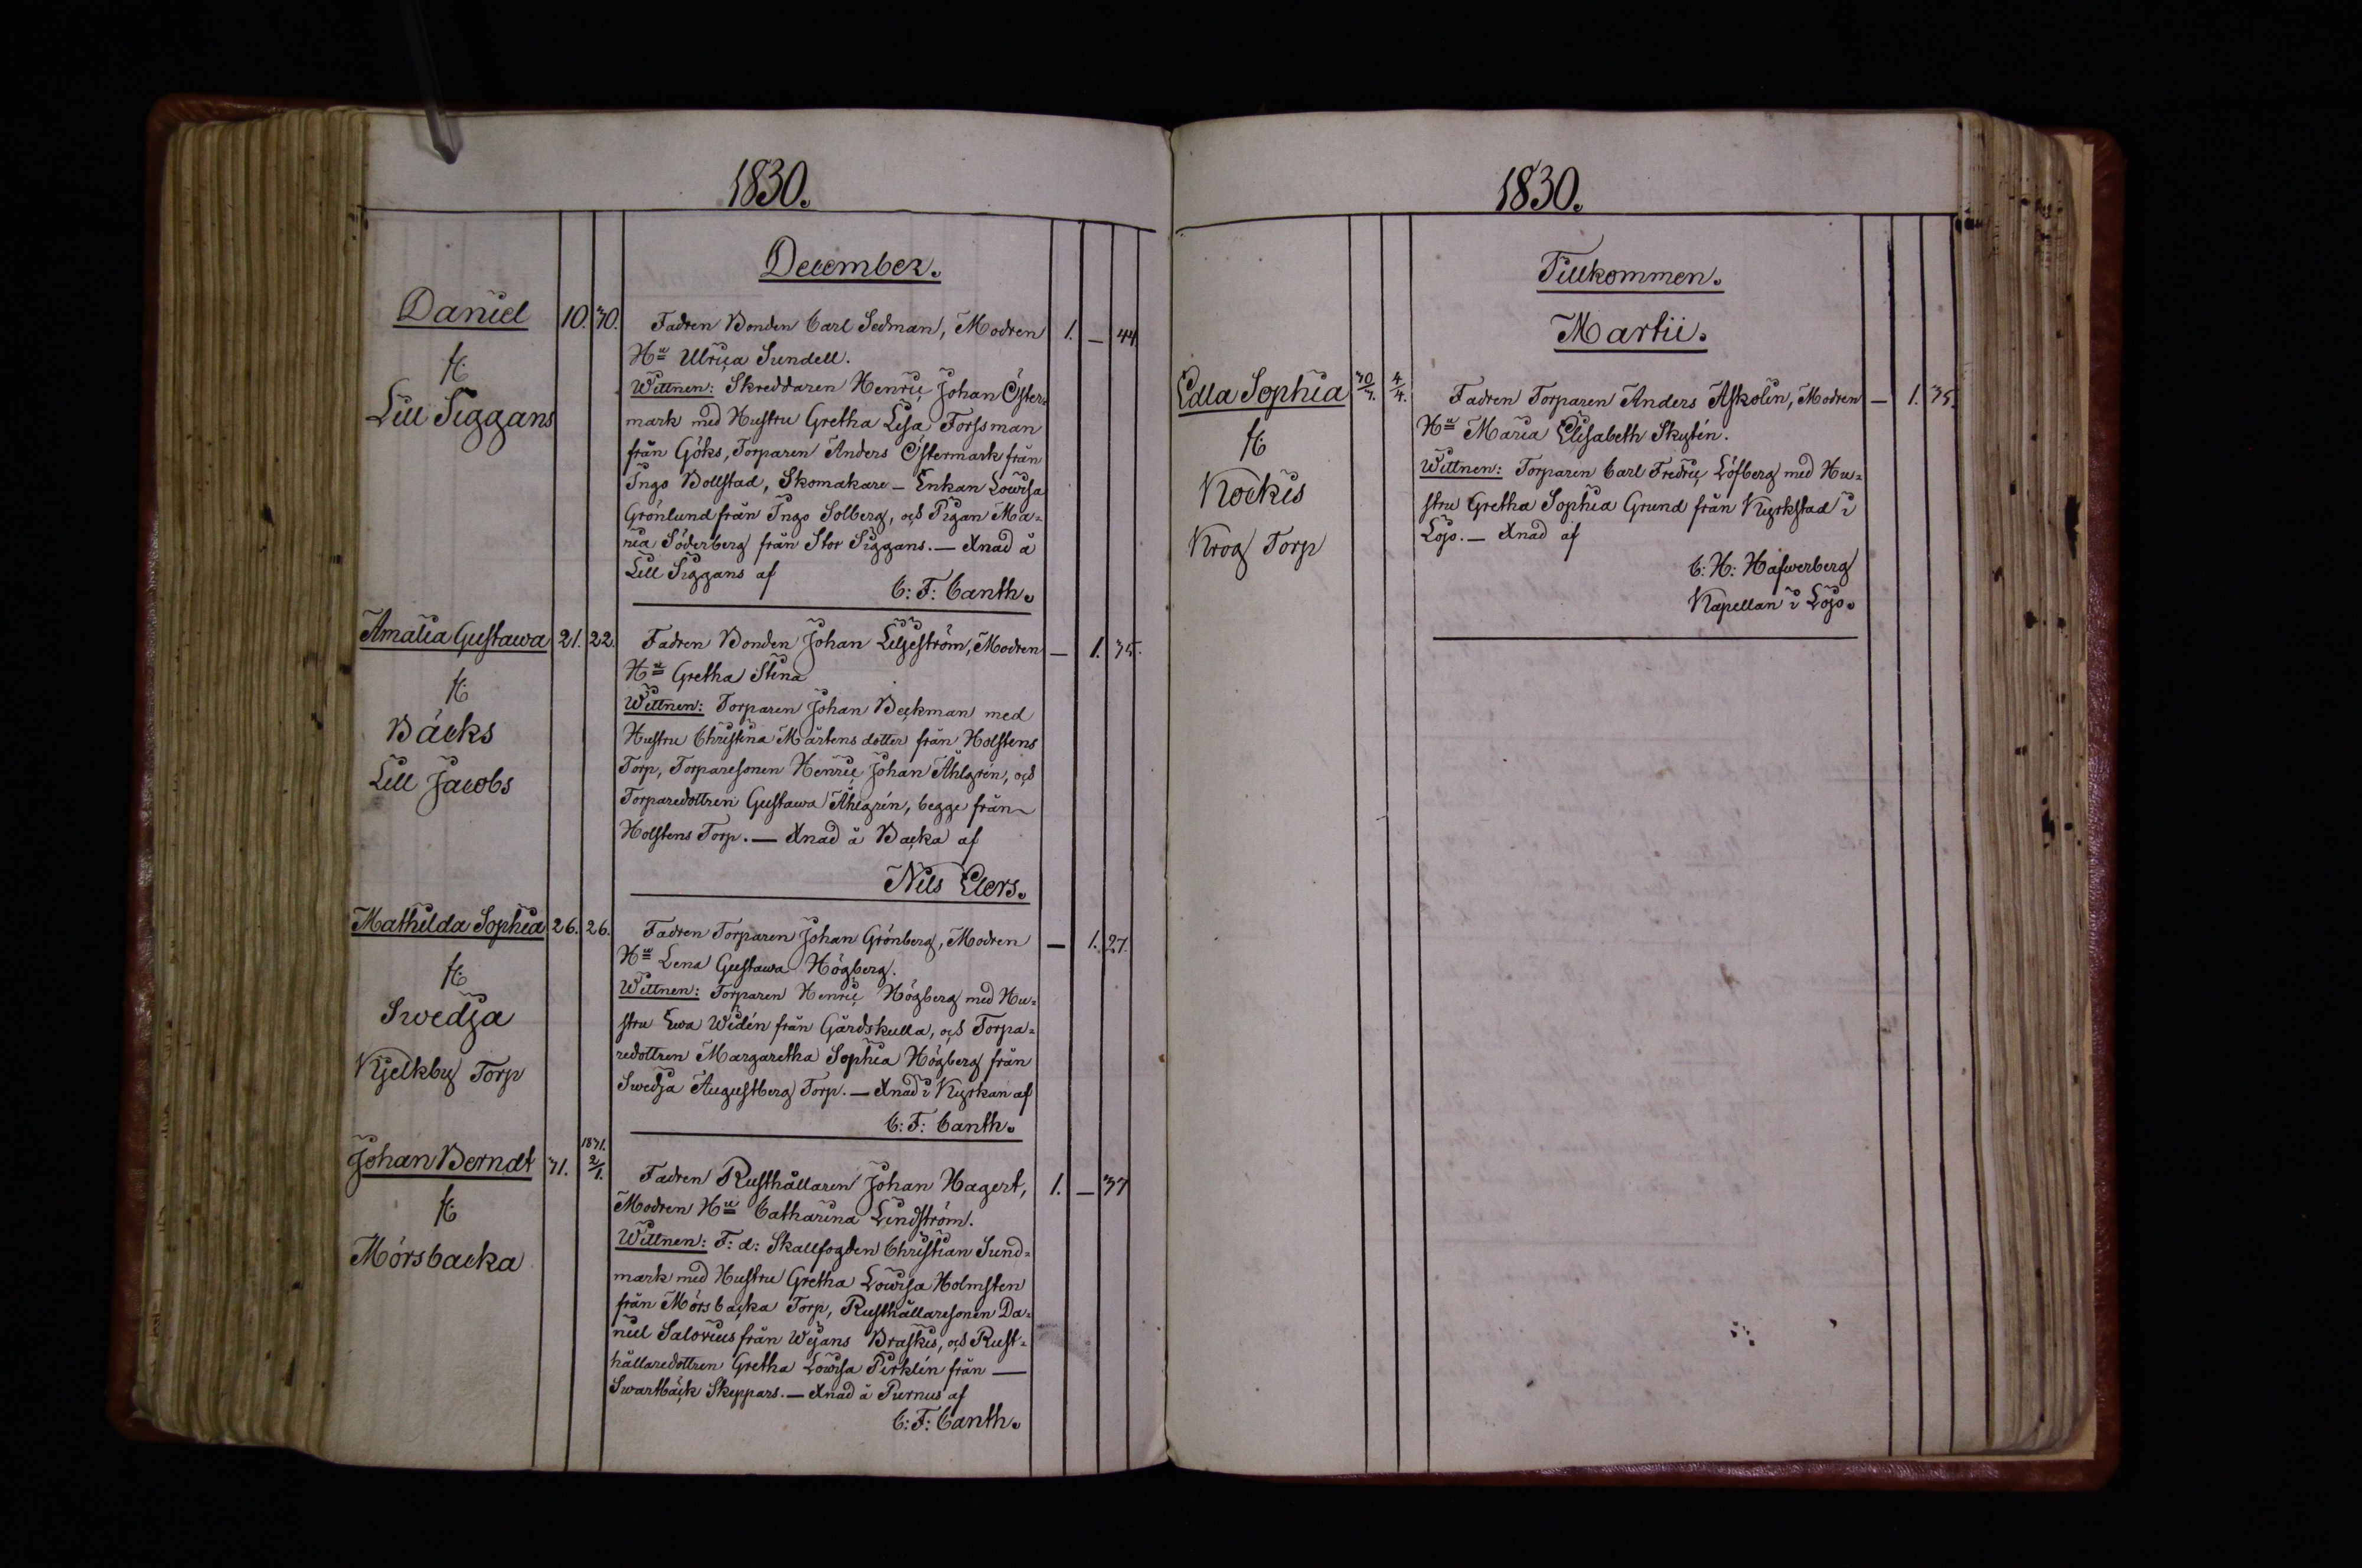 1830.
December.
Daniel 10. 30. Fadren Bonden Carl Sedman, Modren 1. — 44.
Hu Ulrica Sundell.
ft:
Wittnen: Skreddaren Henric Johan Öster=
Lill Siggans
mark med Hustru Gretha Lisa Forssman
från Göks, Torparen Anders Östermark från
Ingo Bollstad, Skomakare - Enkan Lowisa
Grönlund från Ingo Solberg, och Pigan Ma=
ria Söderberg från Stor Siggans. — Xnad å
Lill Siggans af
C: F: Canth.
Amalia Gustawa 21. 22. Fadren Bonden Johan Liljeström, Modren — 1. 35.
Hu Gretha Stina
ft:
Wittnen: Torparen Johan Beckman med
Bäcks
Hustru Christina Mårtens dotter från Holstens
Lill Jacobs
Torp, Torparesonen Henric Johan Åhlgrén, och
Torparedottren Gustawa Åhlgrén, begge från
Holstens Torp. — Xnad å Backa af
Nils Elers.
Mathilda Sophia 26. 26. Fadren Torparen Johan Grönberg, Modren — 1. 27.
Hu Lena Gustawa Högberg.
ft:
Wittnen: Torparen Henric Högberg med Hu=
Swedja
stru Ewa Widén från Gårdskulla, och Torpa=
Kjelkby Torp
redottren Margaretha Sophia Högberg från
Swedja Augustberg Torp. — Xnad i Kyrkan af
C: F: Canth.
Johan Berndt 31. 1831. 2/1. Fadren Rusthållaren Johan Hagert, 1. — 37
Modren Hu Catharina Lindström.
ft:
Wittnen: F: d: Skallfogden Christian Sund=
Mörsbacka
mark med Hustru Gretha Lowisa Holmsten
från Mörsbacka Torp, Rusthållaresonen Da=
niel Salovius från Wejans Braskis, och Rust=
hållaredottren Gretha Lowisa Pirklén från —
Swartbäck Skeppars. — Xnad å Purnus af
C: F: Canth.
1830.
Tillkommen.
Martii.
Edla Sophia 30/3. 4/4. Fadren Torparen Anders Askolin, Modren — 1. 35.
Hu Maria Elisabeth Skytén.
ft:
Wittnen: Torparen Carl Fredric Löfberg med Hu=
Kockis
stru Gretha Sophia Grund från Kyrkstad i
Krog Torp
Lojo. — Xnad af
C: H: Hafwerberg
Kapellan i Lojo.